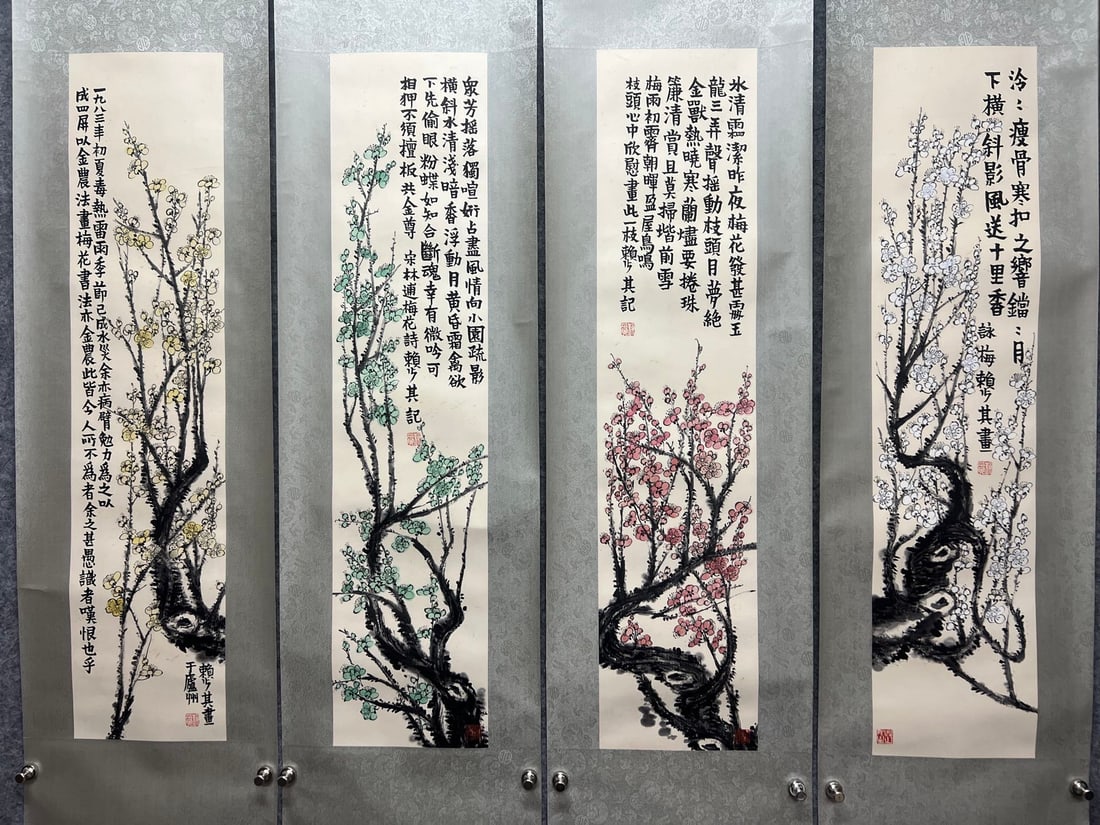 泠〻瘦骨寒扣之響鐺〻月
下橫斜影風送十里香
詠梅賴少其畫
冰清霜潔昨夜梅花發甚處玉
龍三弄聲摇動枝頭月夢絶
金獸熱曉寒蘭燼要捲珠
簾清賞且莫掃堦前雪
梅雨初霽朝暉盈屋鳥鳴
枝頭心中欣慰畫此一枝賴少其記
衆芳摇落獨喧妍占盡風情向小園疏影
橫斜水清淺暗香浮動月黄昏霜禽欲
下先偷眼粉蝶如知合斷魂幸有微吟可
相狎不須擅板共金尊 宋林逋梅花詩賴少其記
一九八三年初夏毒熱雷雨季節已成水災余亦病臂勉力爲之以
成四屏以金農法畫梅花書法亦金農此皆今人所不爲者余之甚愚識者嘆恨也乎
賴少其畫
于廬州